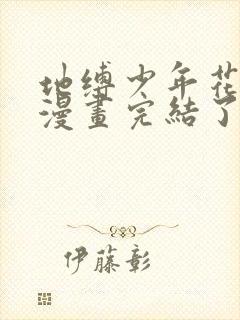 地缚少年花
漫畫完結了
伊藤彰